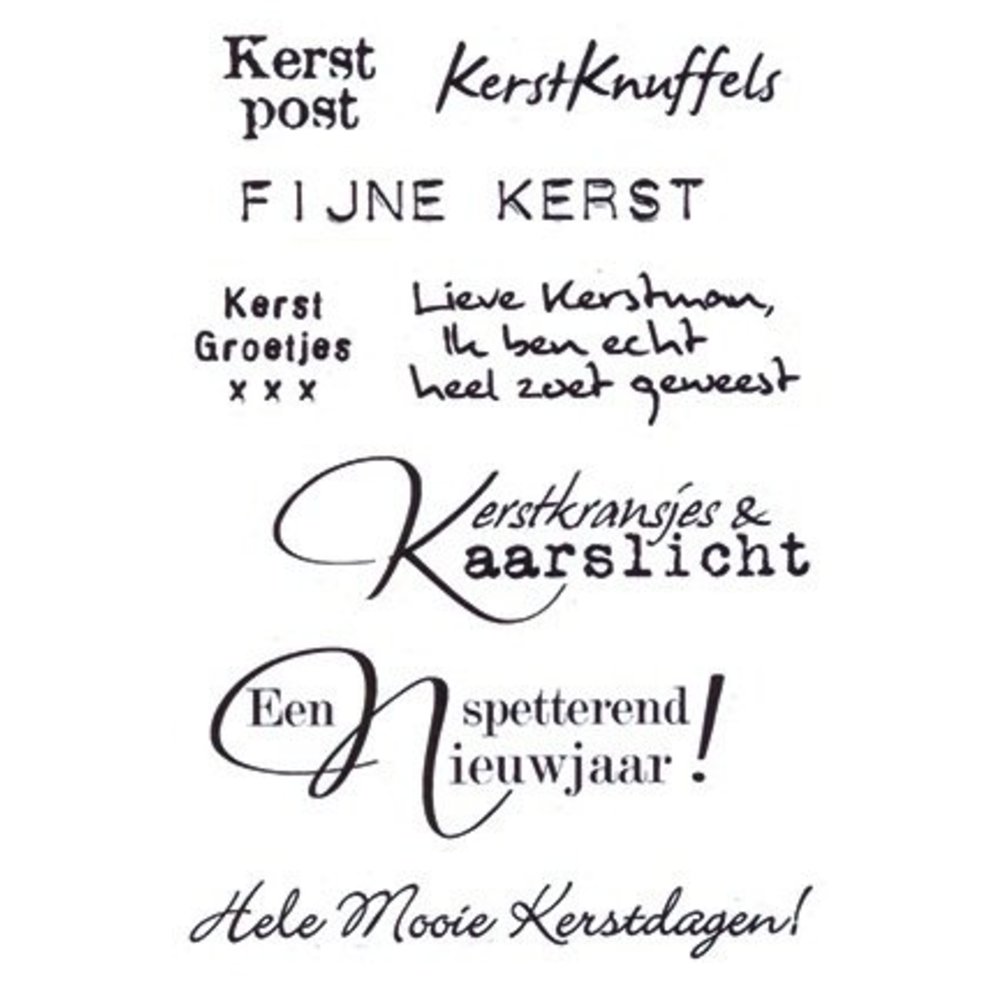 Kerst
post
KerstKnuffels
FIJNE KERST
Kerst
Groetjes
x x x
Lieve Kerstman,
Ik ben echt
heel zoet geweest
Kerstkransjes &
Kaarslicht
Een spetterend
Nieuwjaar!
Hele Mooie Kerstdagen!